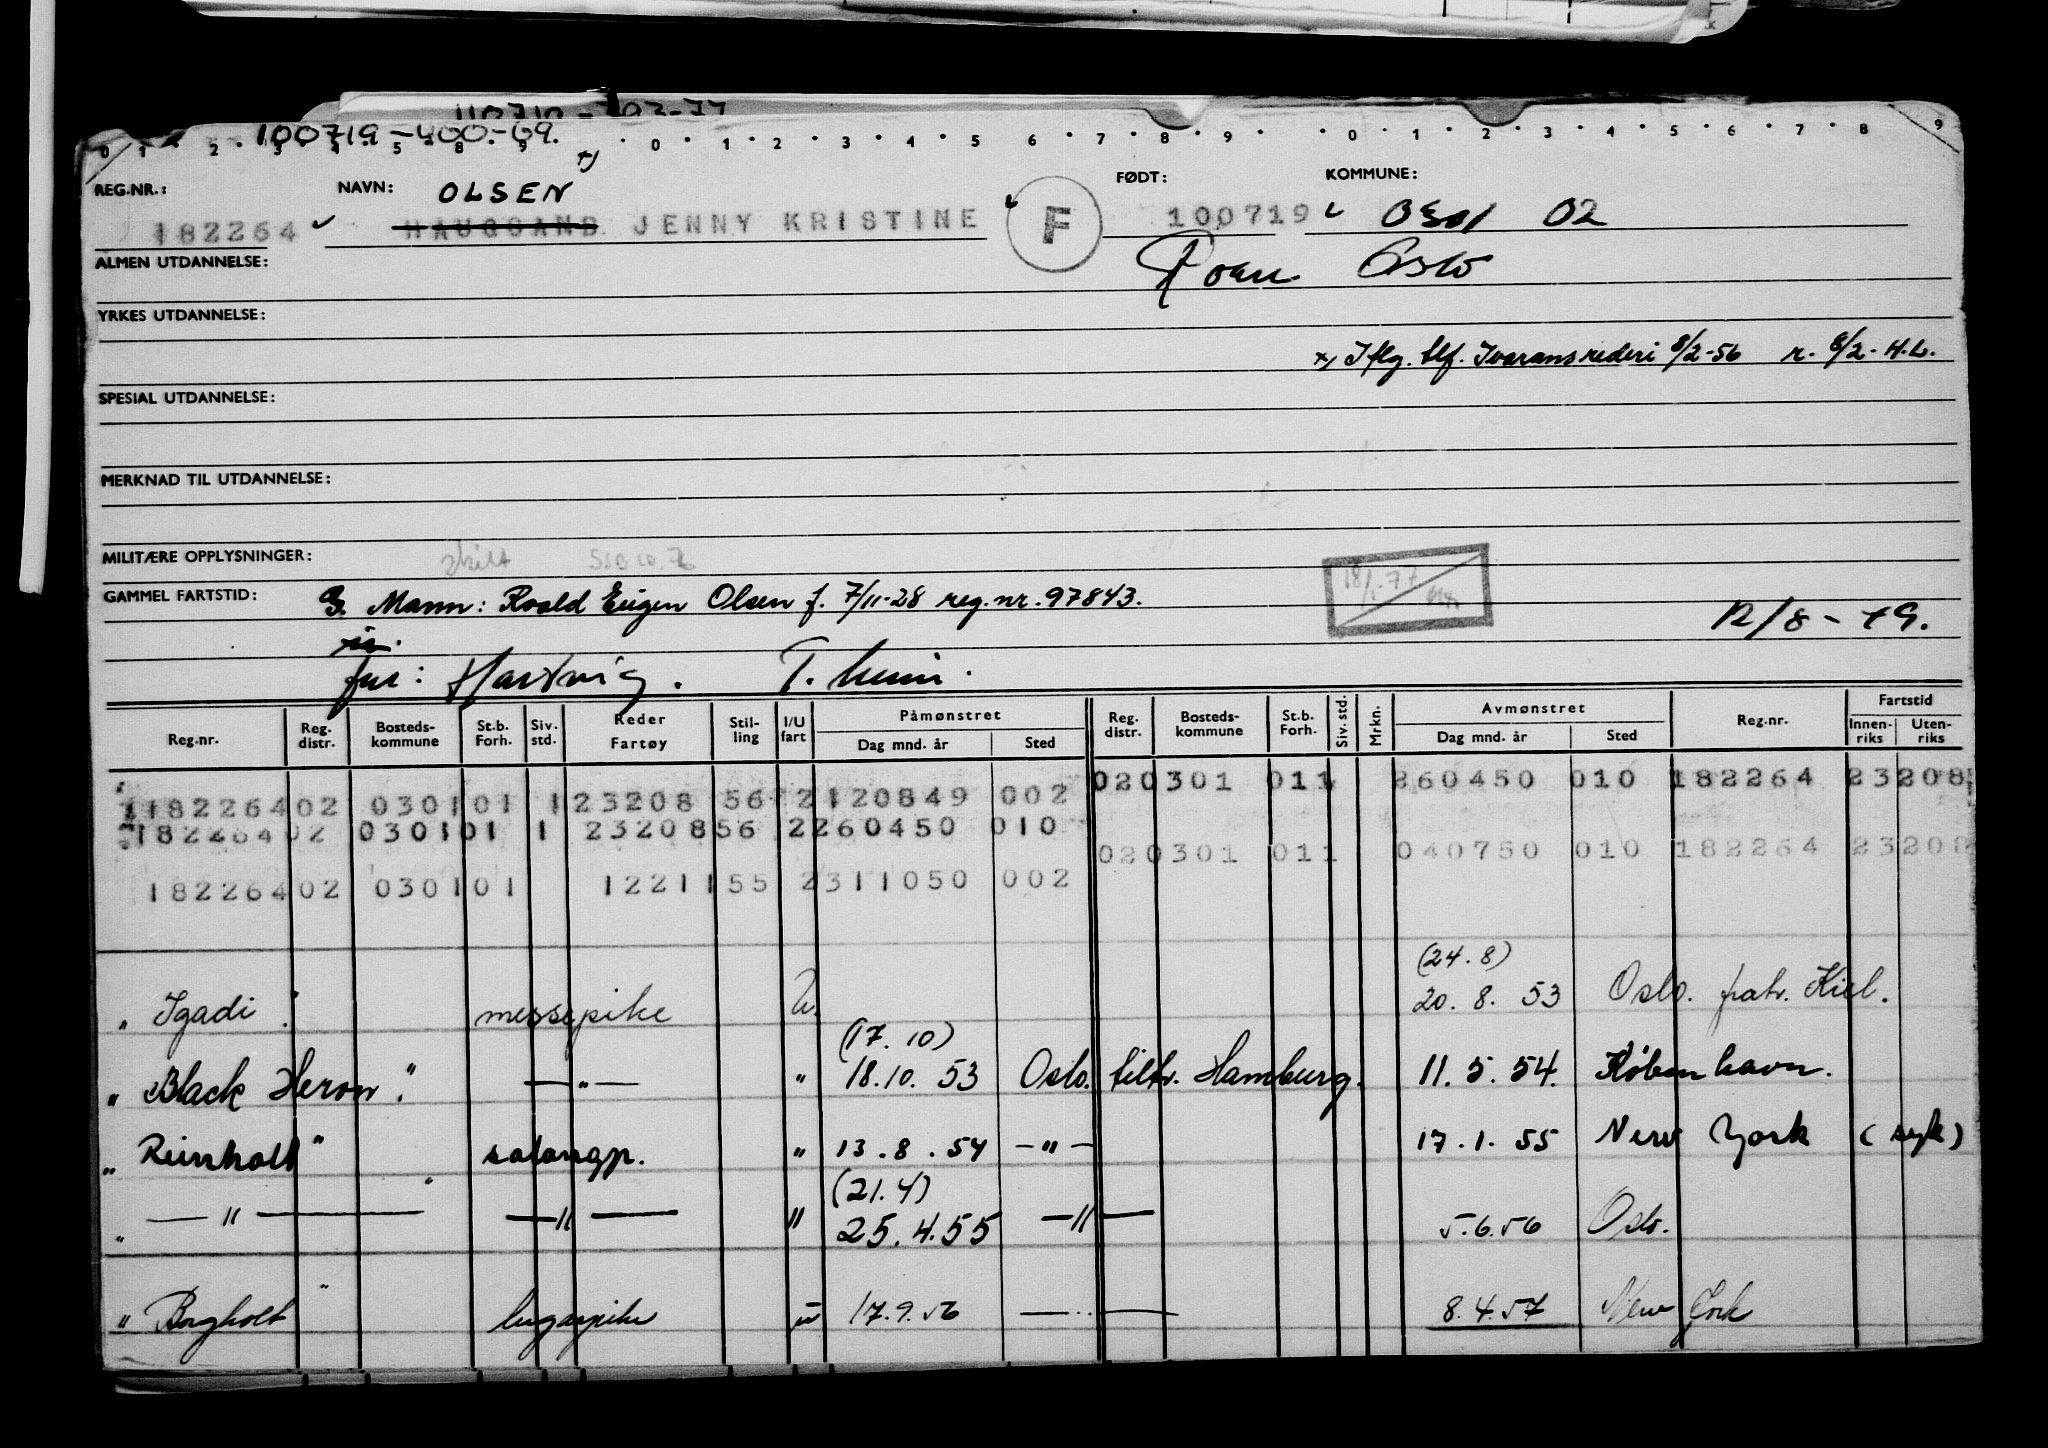 100719-400-69.
0 1 2 3 4 5 8 9 0 1 2 3 4 5 6 7 8 9 0 1 2 3 4 5 6 7 8 9
REG.NR.: NAVN: OLSEN x) FØDT: KOMMUNE:
182264 HAUGOAND JENNY KRISTINE F 100719 0301 02
ALMEN UTDANNELSE: Oslo
YRKES UTDANNELSE:
x) Iflg. tlf. Ivarans rederi 8/2-56 r. 8/2-H.L.
SPESIAL UTDANNELSE:
MERKNAD TIL UTDANNELSE:
MILITÆRE OPPLYSNINGER: skilt
GAMMEL FARTSTID: G. Mann: Roald Eugen Olsen f. 7/11-28 reg.nr. 97843. 18/1-77
12/8-49.
far: Hartvig.
Reg.nr. Reg. distr. Bosteds-kommune St.b. Forh. Siv. std. Reder Fartøy Stil-ling I/U fart Påmønstret Dag mnd. år Sted Reg. distr. Bosteds-kommune St.b. Forh. Siv. std. Mrkn. Avmønstret Dag mnd. år Sted Reg.nr. Fartstid Innen-riks Uten-riks
182264 02 0301 01 1 23208 56 2 120849 002 02 0301 01 1 260450 010 182264 23208
182264 02 0301 01 1 23208 56 2 260450 010
02 0301 01 1 040750 010 182264 23208
182264 02 0301 01 12211 55 2 311050 002
(24.8)
" Igadi " messepike U. 20.8.53 Oslo. fratr. Kiel.
(17.10)
" Black Heron " — " — " 18.10.53 Oslo. tiltr. Hamburg. 11.5.54. København.
" Reinholt " salongp. " 13.8.54 — " — 17.1.55 New York (syk)
(21.4)
" — " — — " — " 25.4.55 — " — 5.6.56 Oslo.
" Borgholt " lugarpike u 17.9.56 — " — 8.4.57 New York